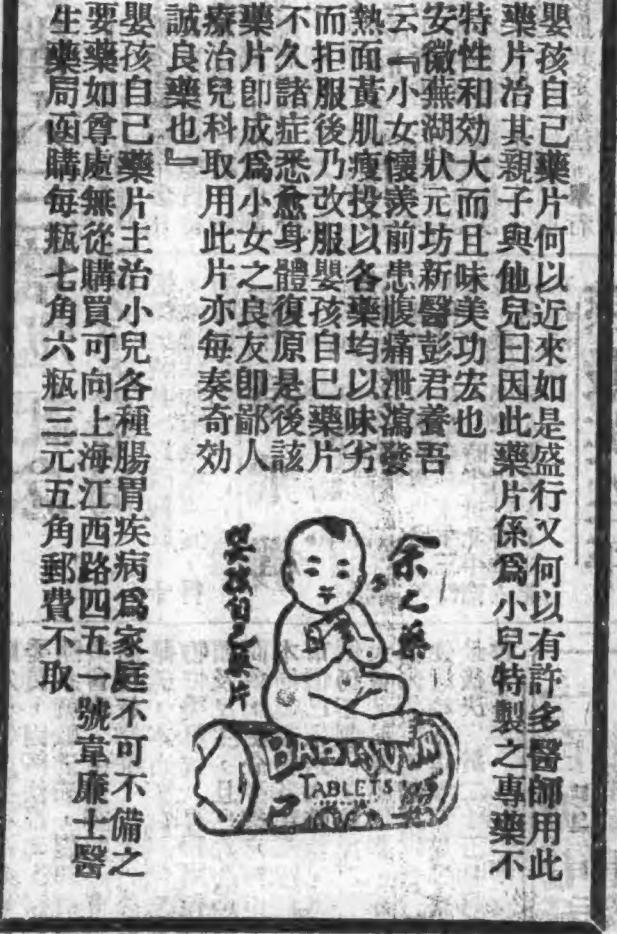 嬰孩自己藥片何以近來如是盛行又何以有許多醫師用此
藥片治其親子與他兒曰因此藥片係爲小兒特製之專藥不
特性和効大而且味美功宏也
安徽蕪湖狀元坊新醫彭君養吾
云『小女懷羨前患腹痛泄瀉發
熱面黃肌瘦投以各藥均以味劣
而拒服後乃改服嬰孩自己藥片
不久諸症悉愈身體復原是後該
藥片卽成爲小女之良友卽鄙人
療治兒科取用此片亦每奏奇効
誠良藥也』
嬰孩自己藥片主治小兒各種腸胃疾病爲家庭不可不備之
要藥如尊處無從購買可向上海江西路四五一號韋廉士醫
生藥局函購每瓶七角六瓶三元五角郵費不取
余之藥
嬰孩自己藥片
BABY'S OWN
TABLETS
己